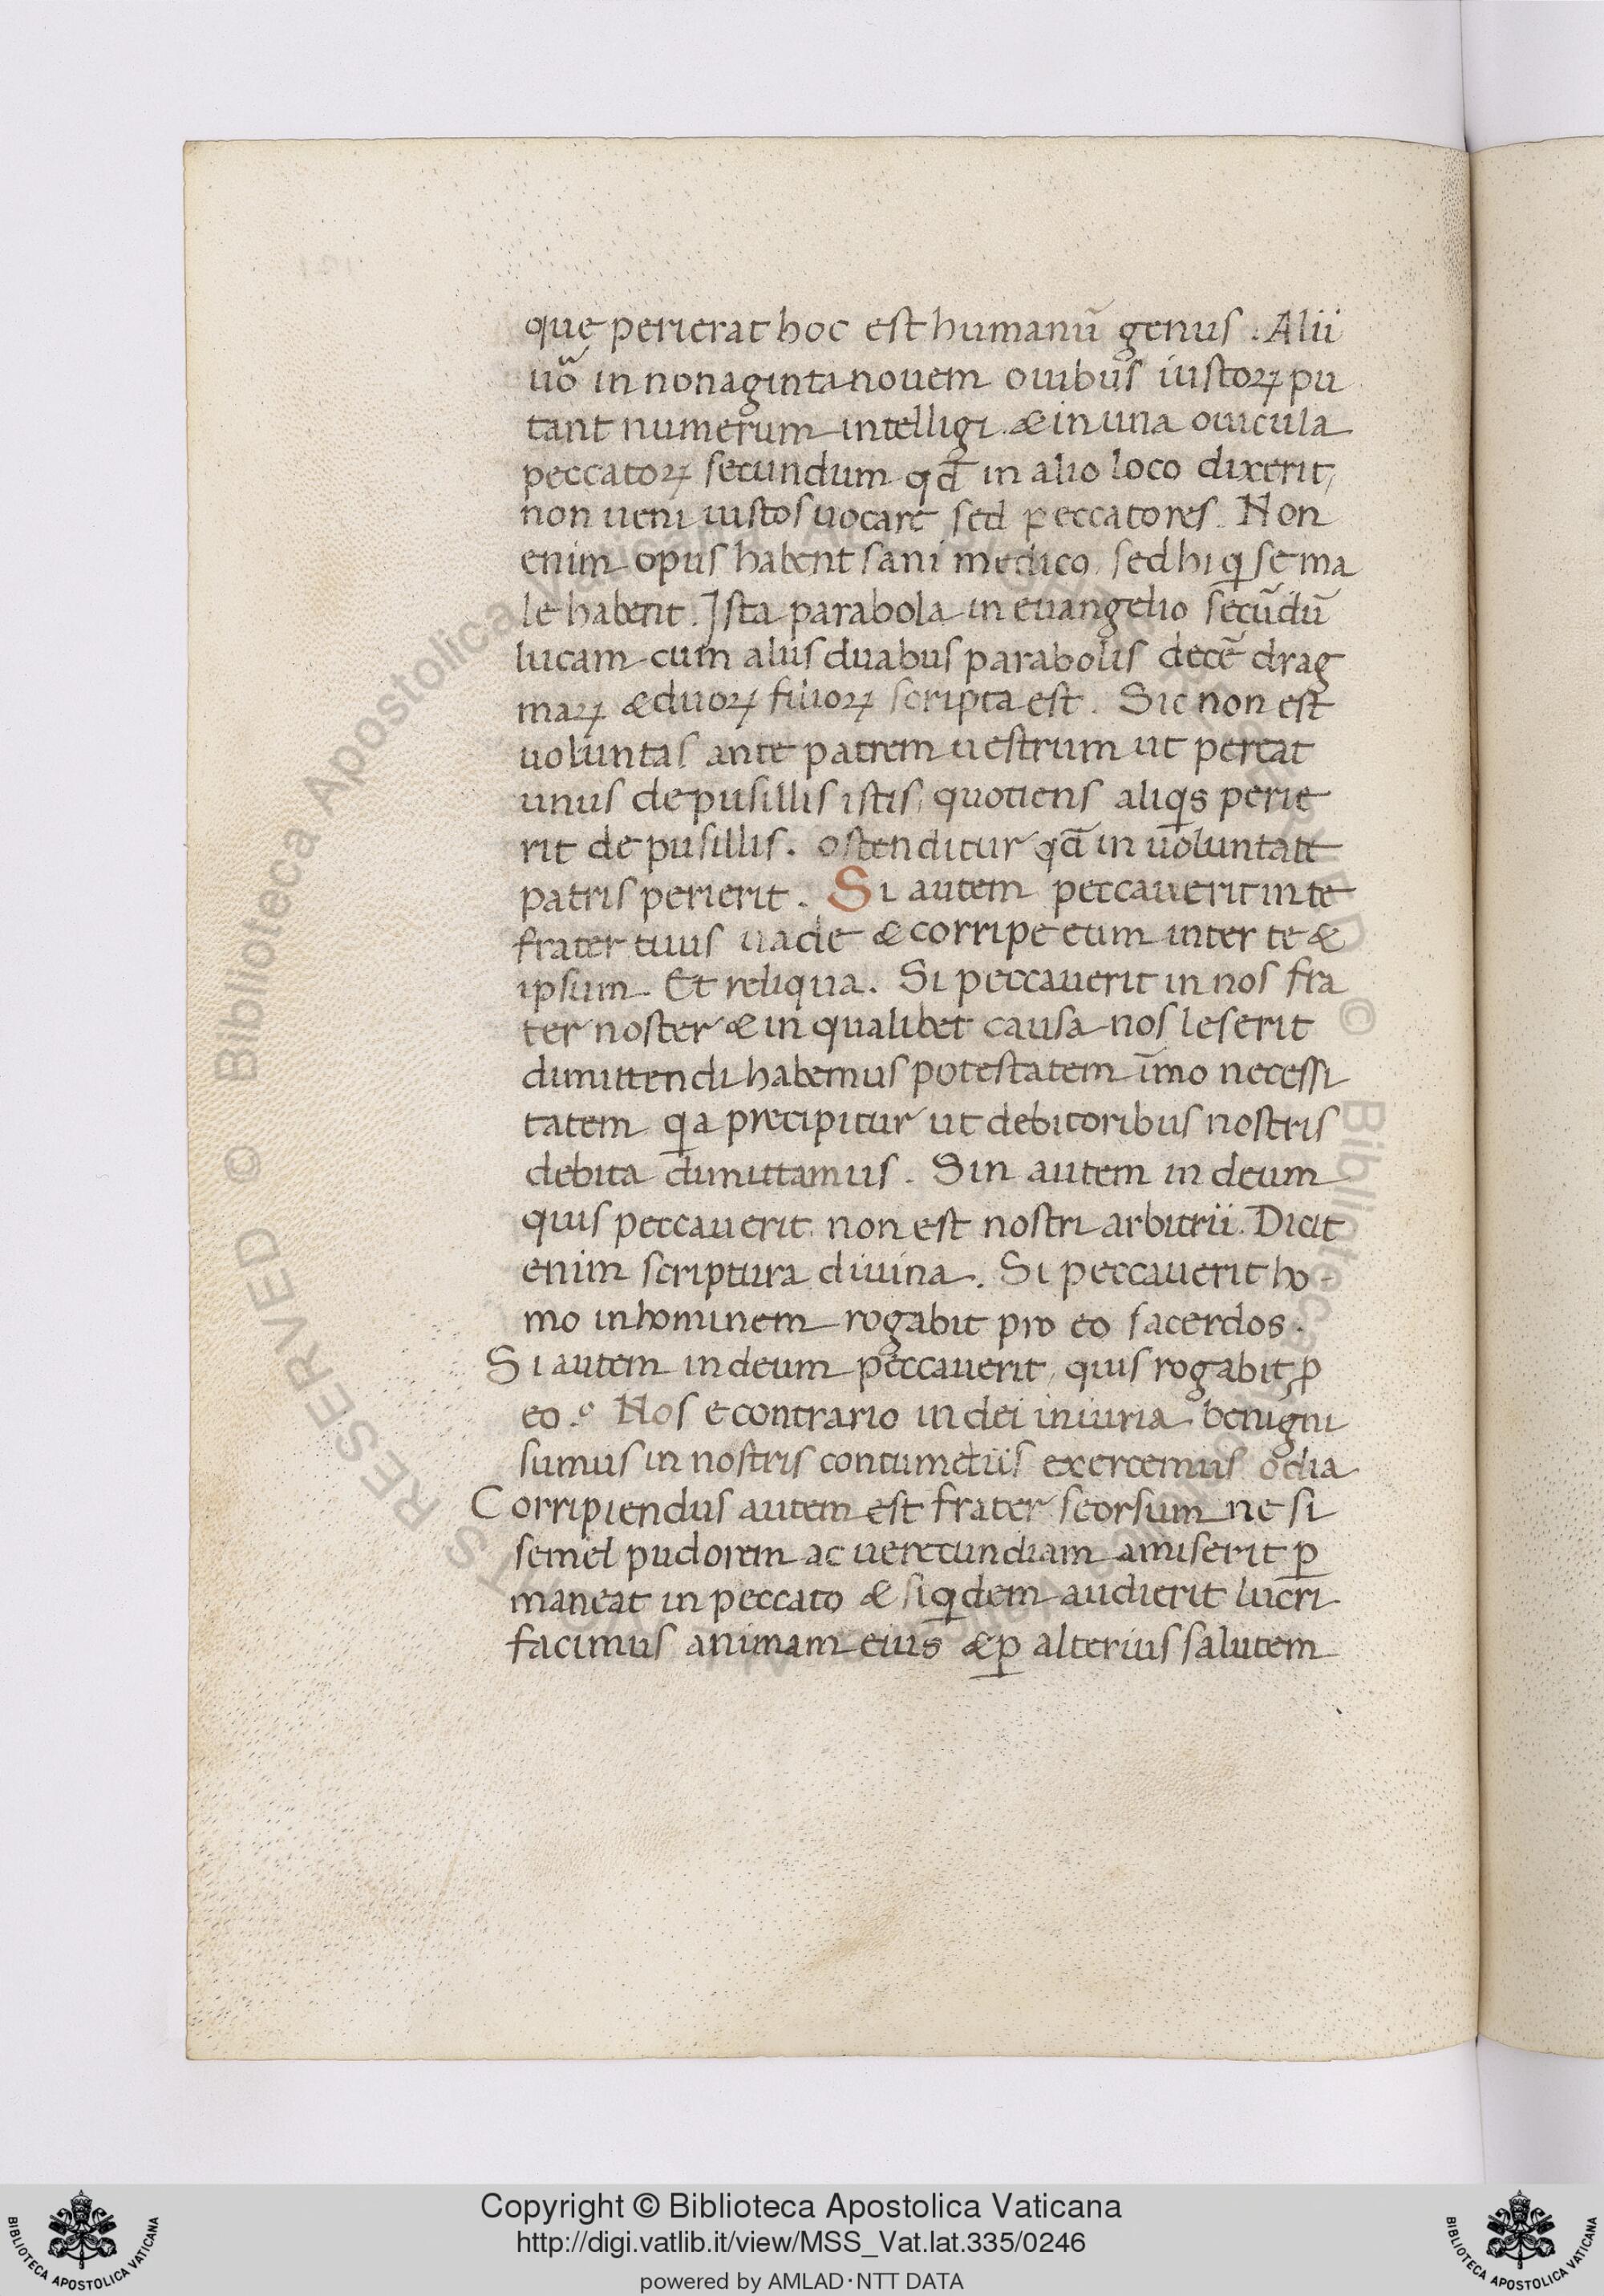 quę perierat hoc est humanū genus. Alii
uo͂ in nonaginta nouem ouibus iustoꝝ pu
tant numerum intelligi. & in una ouicula
peccatoꝝ secundum qđ in alio loco dixerit,
non ueni iustos uocare sed peccatores. Non
enim opus habent sani medico, sed hi ꝗ se ma
le habent. Ista parabola in euangelio secūdū
lucam cum aliis duabus parabolis decē drag
maꝝ & duoꝝ filioꝝ scripta est. Sic non est
uoluntas ante patrem uestrum ut pereat
unus de pusillis istis, quotiens aliꝗs perie
rit de pusillis. ostenditur qđ in uoluntate
patris perierit. Si autem peccauerit in te
frater tuus uade & corripe eum inter te &
ipsum. Et reliqua. Si peccauerit in nos fra
ter noster & in qualibet causa nos leserit
dimittendi habemus potestatem īmo necessi
tatem ꝗa precipitur ut debitoribus nostris
debita dimittamus. Sin autem in deum
quis peccauerit. non est nostri arbitrii. Dicit
enim scriptura diuina. Si peccauerit ho-
mo in hominem rogabit pro eo sacerdos.
Si autem in deum peccauerit, quis rogabit ꝓ
eo? Nos e contrario in dei iniuria benigni
sumus in nostris contumeliis exercemus odia
Corripiendus autem est frater seorsum ne si
semel pudorem ac uerecundiam amiserit ꝑ
maneat in peccato & siꝗdem audierit lucri
facimus animam eius & ꝑ alterius salutem
© Biblioteca Apostolica Vaticana
RIGHTS RESERVED
Copyright © Biblioteca Apostolica Vaticana
http://digi.vatlib.it/view/MSS_Vat.lat.335/0246
powered by AMLAD·NTT DATA
BIBLIOTECA APOSTOLICA VATICANA
BIBLIOTECA APOSTOLICA VATICANA